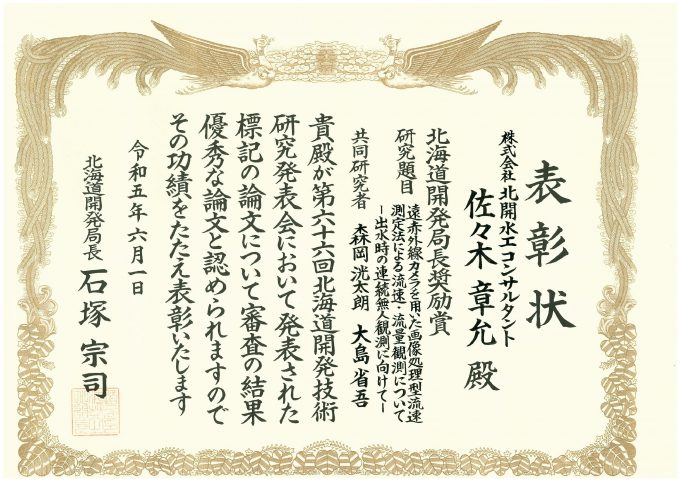 表彰状
株式会社 北開水工コンサルタント
佐々木 章允 殿
北海道開発局長奨励賞
研究題目 遠赤外線カメラを用いた画像処理型流速
測定法による流速・流量観測について
－出水時の連続無人観測に向けて－
共同研究者 森岡 洸太朗 大島 省吾
貴殿が第六十六回北海道開発技術
研究発表会において発表された
標記の論文について審査の結果
優秀な論文と認められますので
その功績をたたえ表彰いたします
令和五年六月一日
北海道開発局長 石塚 宗司